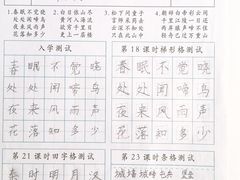 1.春眠不觉晓 2.白日依山尽 3.松下问童子 4.朝辞白帝彩云间
处处闻啼鸟 黄河入海流 言师采药去 千里江陵一日还
夜来风雨声 欲穷千里目 只在此山中 两岸猿声啼不住
花落知多少 更上一层楼 云深不知处 轻舟已过万重山
入学测试 第18课时梯形格测试
春眠不觉晓 春眠不觉晓
处处闻啼鸟 处处闻啼鸟
夜来风雨声 夜来风雨声
花落知多少 花落知多少
第21课时田字格测试 第23课时条格测试
春眠不觉 城墙